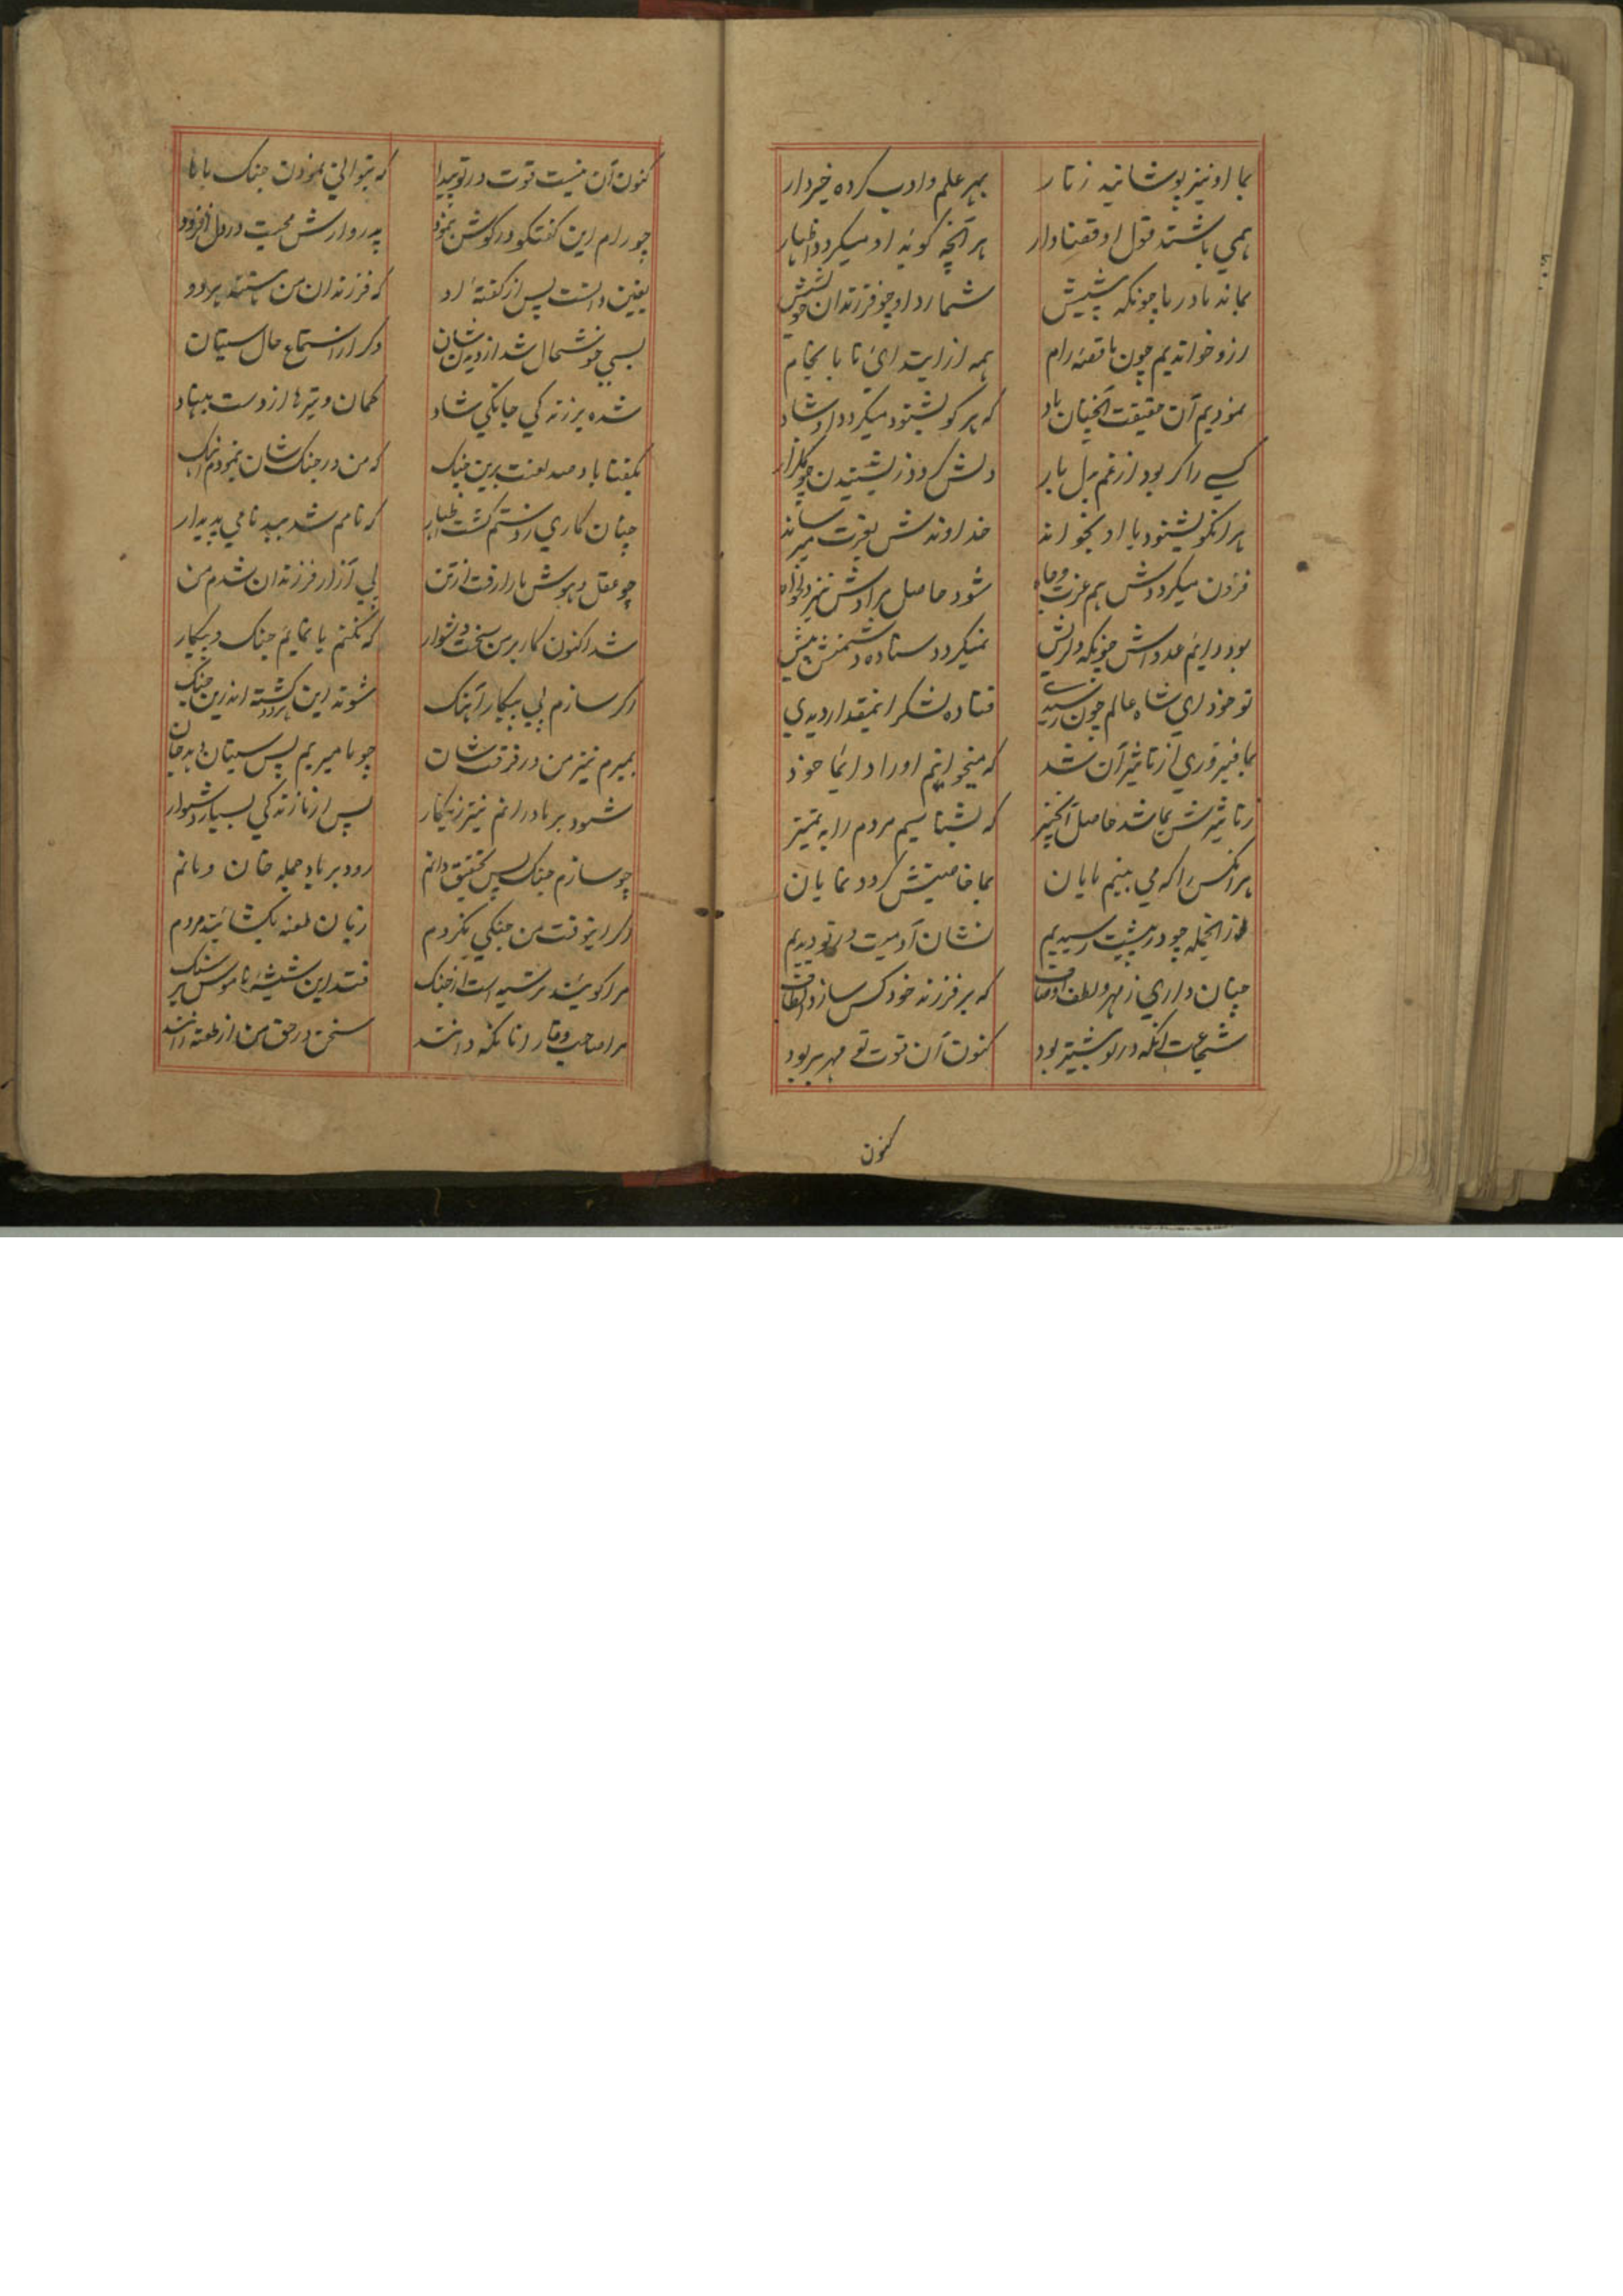 بما او نیز پوشانید زنار بهر علم و ادب کرده خبردار
همی باشند قول او قضا وار هر آنچه گوید او میگردد اظهار
بماند مادر ما چونکه پیشش شمارد او چو فرزندان خویشش
ازو خواندیم چون ما قصه رام همه از ابتدای تا بانجام
نمودیم آن حقیقت آنچنان یاد که هر کو بشنود میگردد او شاد
کسی را کر بود از غم بدل بار دلش گردد ز بشنیدن چو گلزار
هر آنکو بشنود یا او بخواند خداوندش بعزت میرساند
فزون میگرددش هم عزت و جاه شود حاصل مرادش نیز دلخواه
بود دایم عدواش چونکه دلریش نمیگردد ستاده دشمنش پیش
تو خود ای شاه عالم چون رسیدی فتاده لشکر اینمقدار دیدی
بما فیروزی از تاثیر آن شد که میخوانیم او را دایما خود
ز تاثیرش بما شد حاصل آنچیز که بشناسیم مردم را به تمییز
هر آنکس را که می بینیم مایان بما خاصیتش گردد نمایان
از انجمله چو در پیشت رسیدیم نشان آدمیت در تو دیدیم
چنان داری ز مهر و لطف اوصاف که بر فرزند خود کس سازد الطاف
شجاعت آنکه در تو بیشتر بود کنون آن قوت تو مهر بر بود
کنون
کنون آن نیست قوت در تو پیدا که بتوانی نمودن جنگ با ما
چو رام این گفتگو در گوش بنمود پدروارش محبت در دل افزود
یقین دانست پس از گفتهٔ او که فرزندان من هستند هر دو
بسی خوشحال شد از دیدن شان دگر از استماع حال سیتان
شده بر زندگی جانکی شاد کمان و تیرها از دست بنهاد
بگفتا باد صد لعنت برین جنگ که من در جنگ شان بنمودم آهنگ
چنان کاری ز دستم گشت اظهار که نامم شد ببدنامی پدیدار
چو عقل و هوش ما را رفت از تن پی آزار فرزندان شدم من
شد اکنون کار بر من سخت دشوار که نکنم یا نمایم جنگ و پیکار
اگر سازم پی پیکار آهنگ شوند این هر دو کشته اندرین جنگ
بمیرم نیز من در فرقت شان چو ما میریم پس سیتان دهد جان
شود بر مادرانم نیز زینکار پس از ما زندگی بسیار دشوار
چو سازم جنگ پس تحقیق دانم رود بر باد جمله خان و مانم
دگر اینوقت من جنگی نکردم زبان طعنه بکشایند مردم
مرا گویند ترسیده است از جنگ فتد این شیشهٔ ناموس بر سنگ
مرا صاحب وقار آنانکه دانند سخن در حق من از طعنه رانند